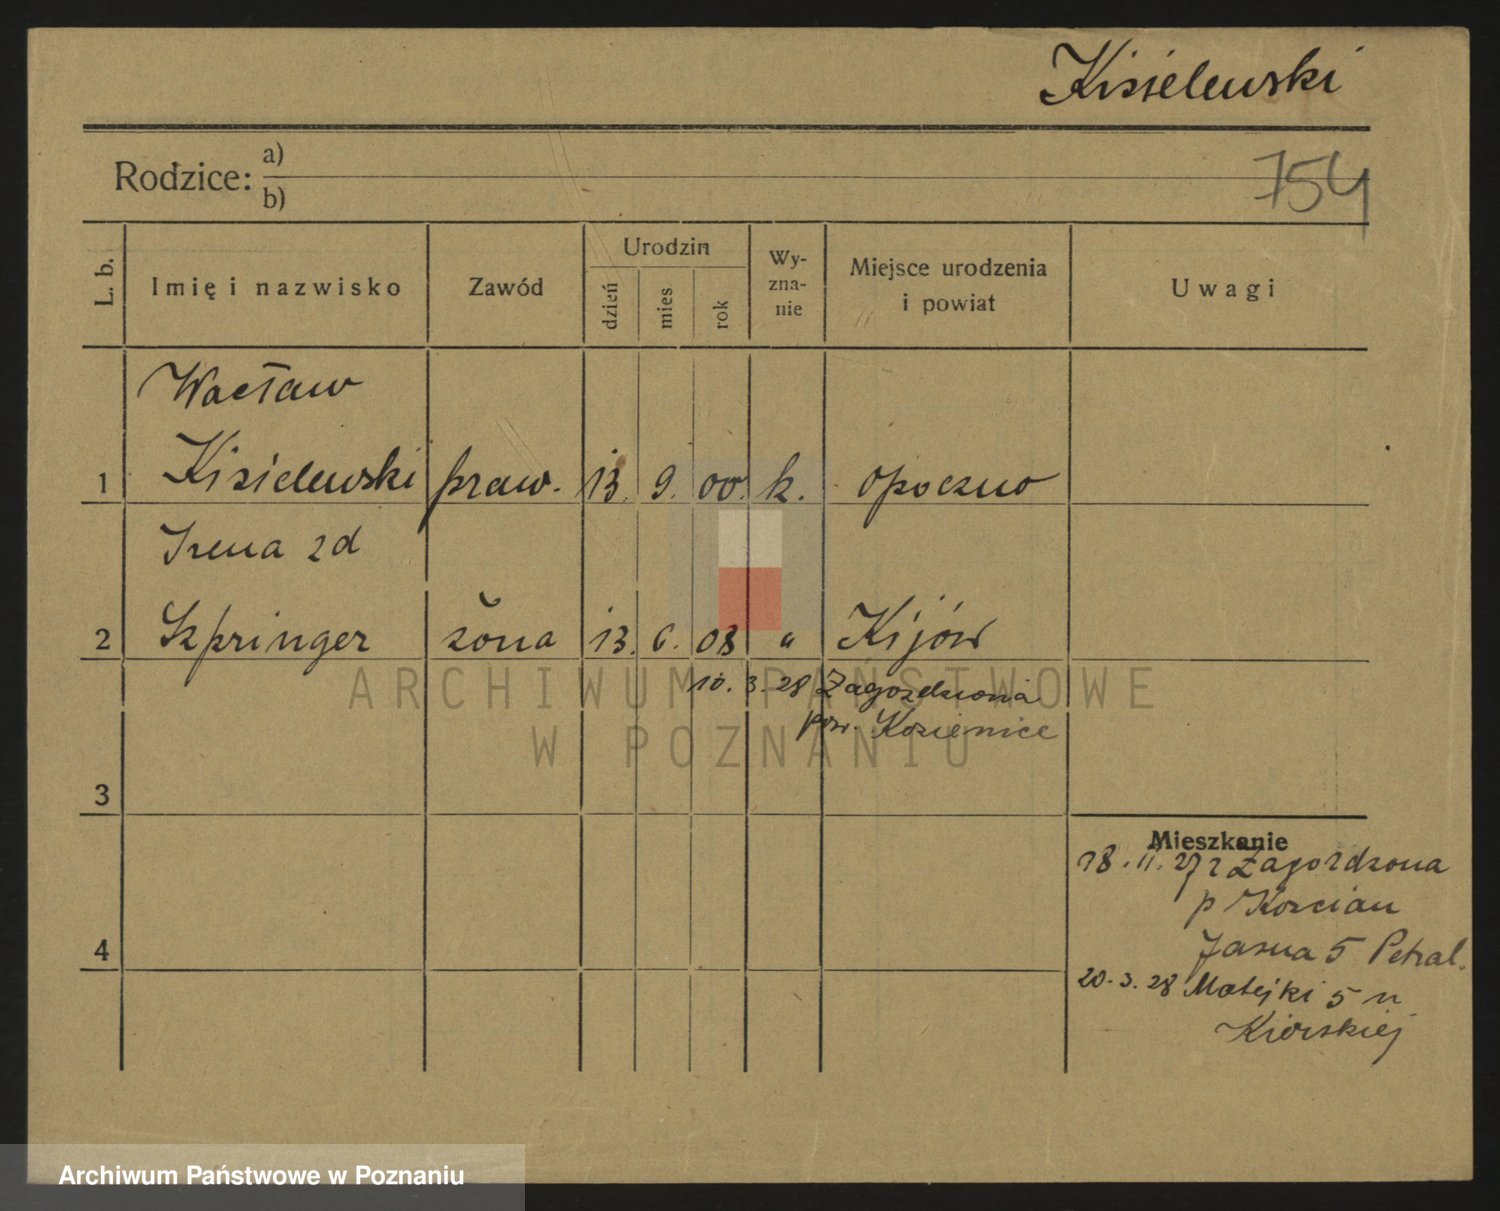 Kisielewski
Rodzice: a)
b)
754
L. b.
Imię i nazwisko
Zawód
Urodzin
dzień
mies
rok
Wy-
zna-
nie
Miejsce urodzenia
i powiat
Uwagi
Wacław
1 Kisielewski praw. 13. 9. 00. k. Opoczno
Irena zd
2 Szpringer żona 13. 6. 03 " Kijów
10. 3. 28 Zagożdżona
pow. Kozienice
3
Mieszkanie
18. 11. 27 z Zagożdżona
p Koscian
4
Jasna 5 Petral.
20. 3. 28 Matejki 5 u
Kierskiej
ARCHIWUM PAŃSTWOWE
W POZNANIU
Archiwum Państwowe w Poznaniu